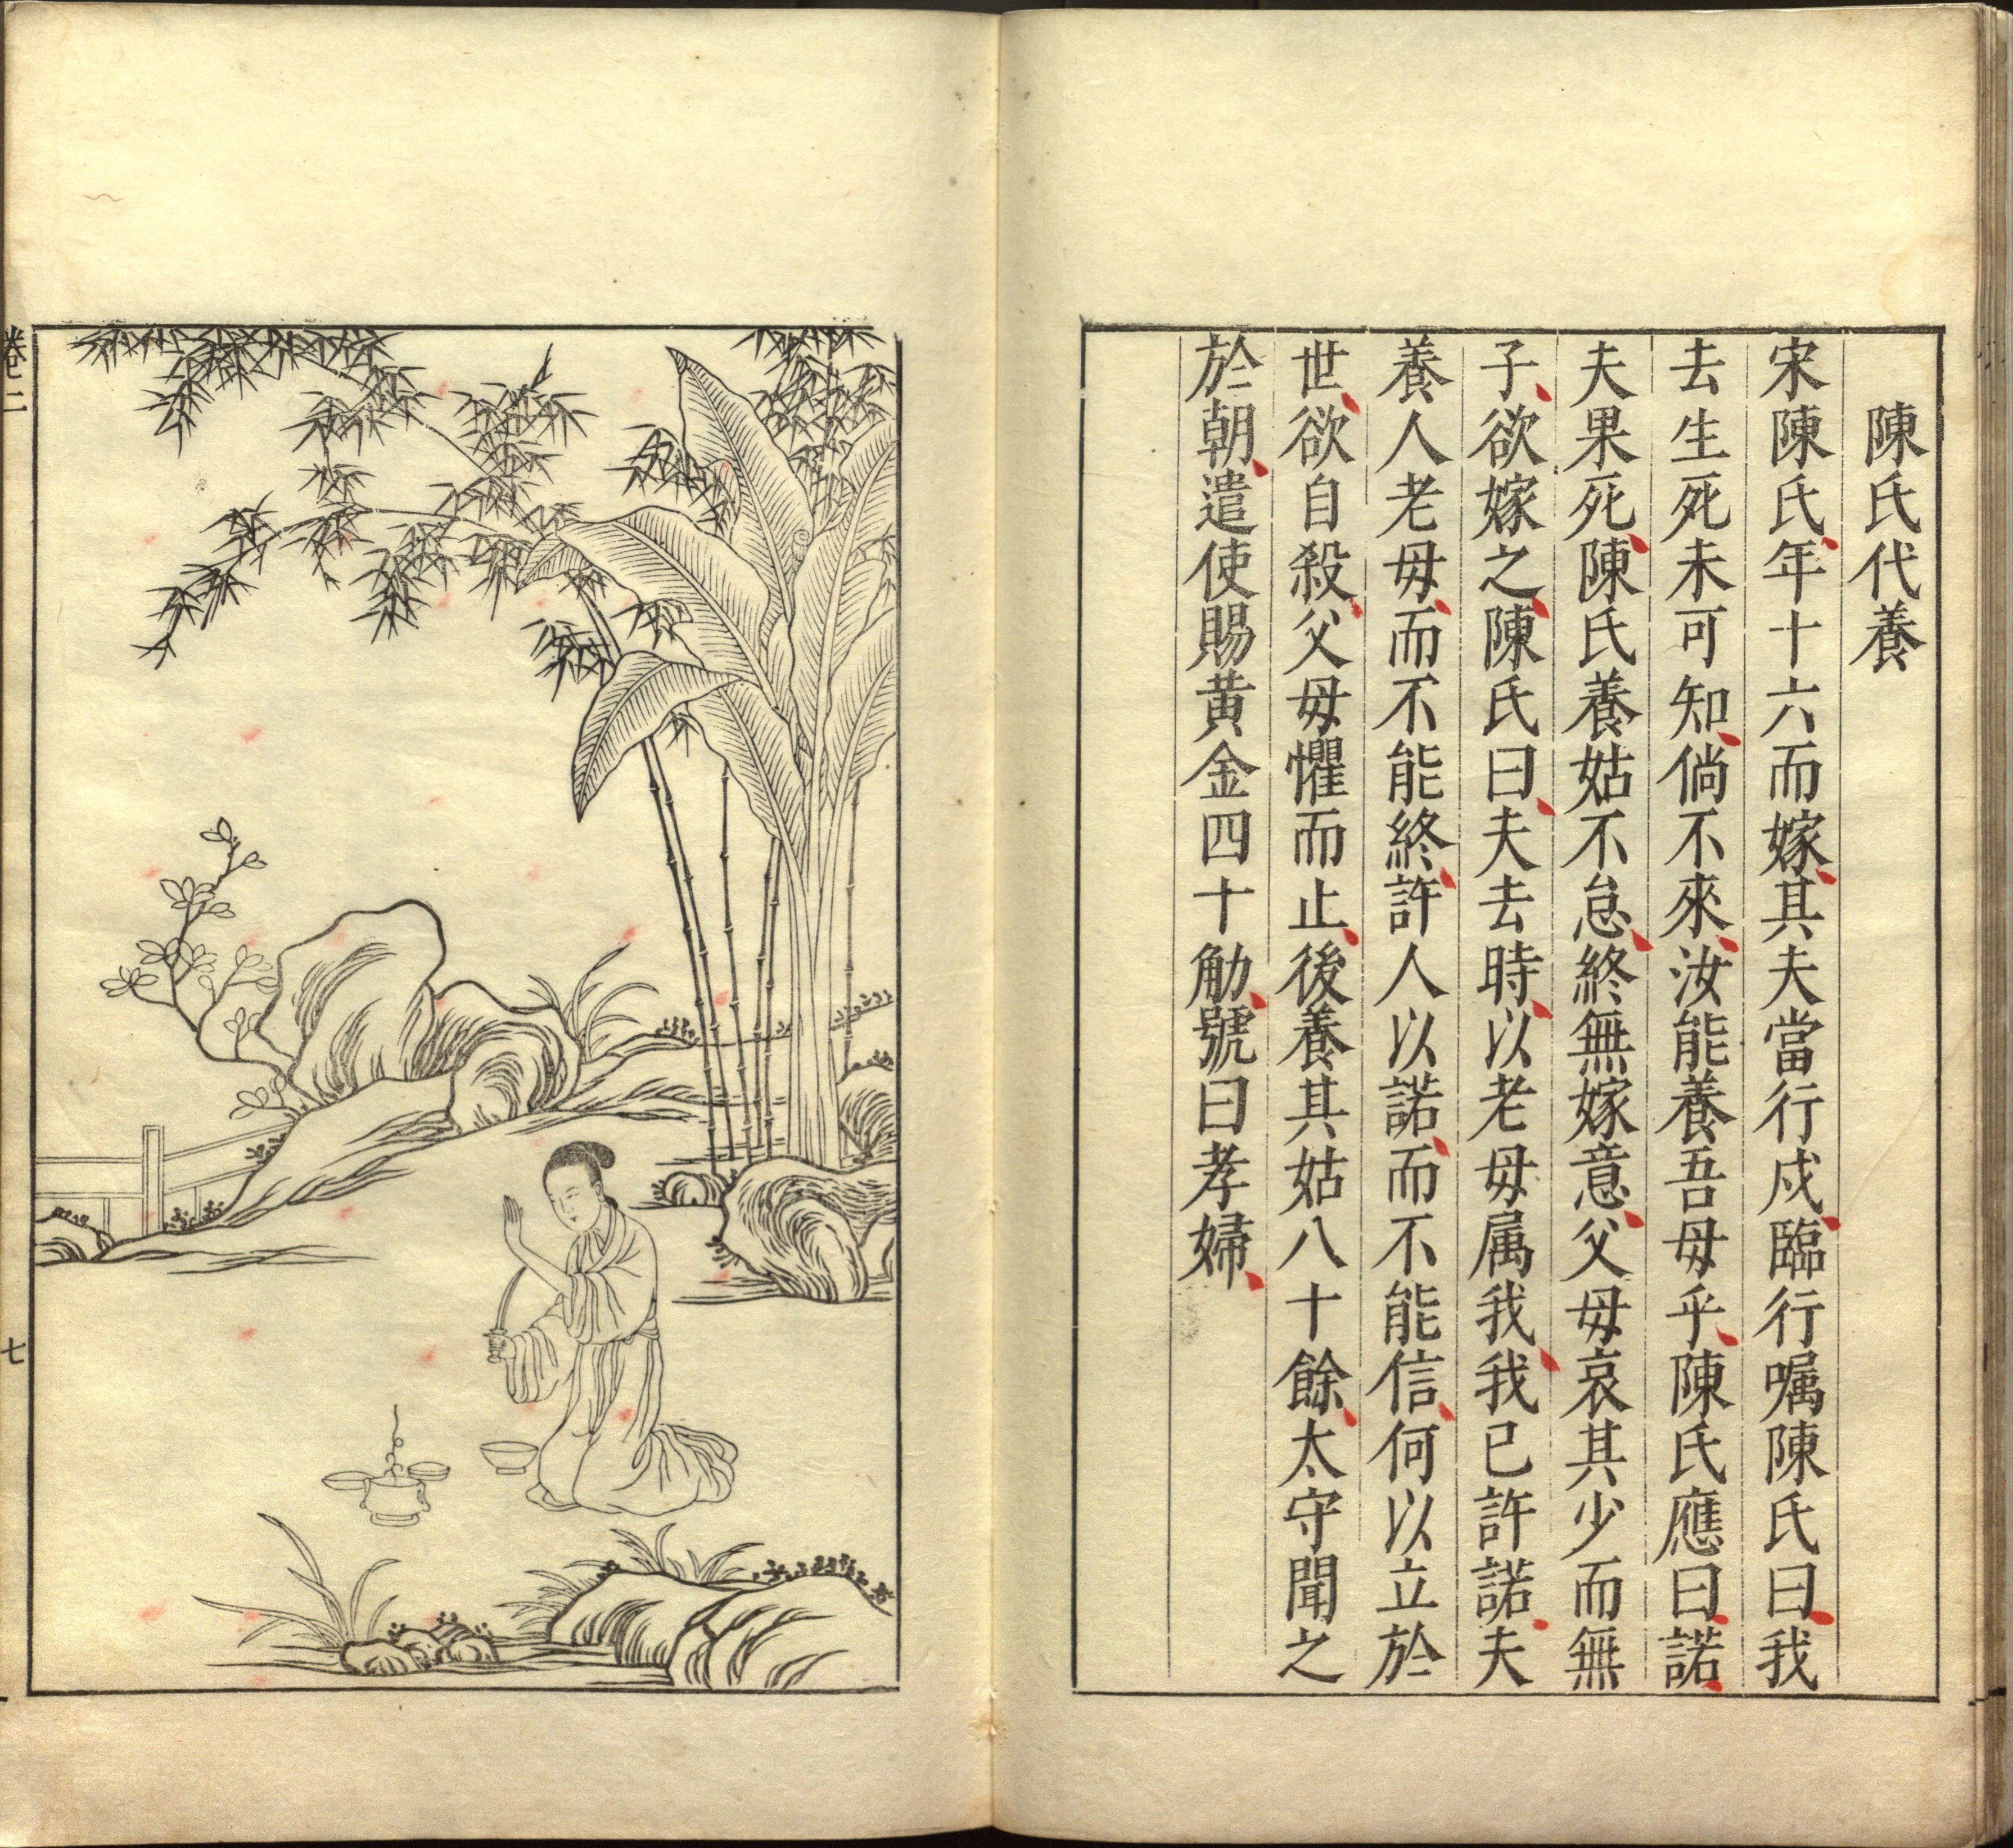 陳氏代養
宋陳氏年十六而嫁其夫當行戍臨行嘱陳氏曰我
去生死未可知倘不來汝能養吾母乎陳氏應曰諾
夫果死陳氏養姑不怠終無嫁意父母哀其少而無
子欲嫁之陳氏曰夫去時以老母属我我已許諾夫
養人老母而不能終許人以諾而不能信何以立於
世欲自殺父母懼而止後養其姑八十餘太守聞之
於朝遣使賜黄金四十觔號曰孝婦
卷二
七